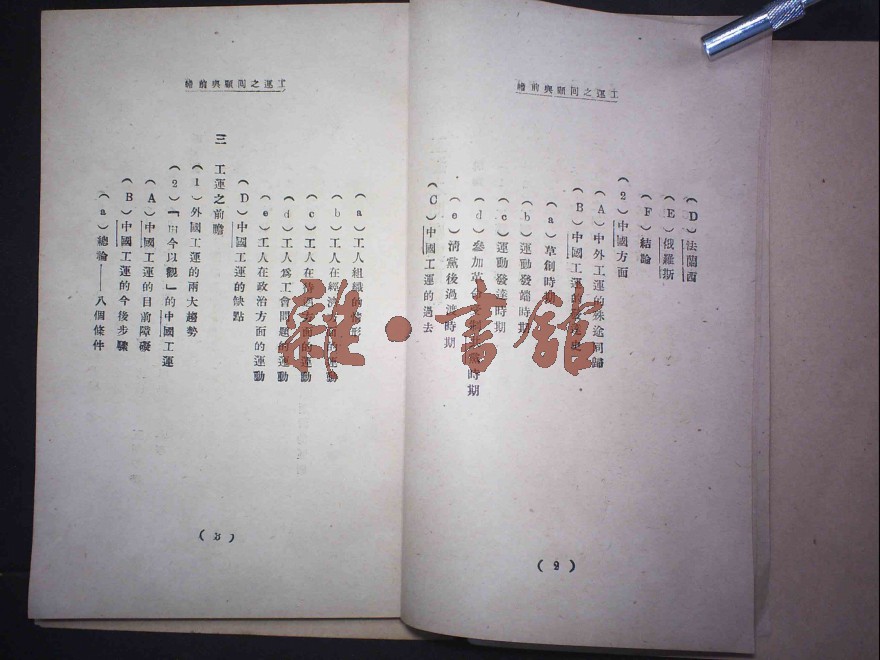 工運之回顧與前瞻
(D)法蘭西
(E)俄羅斯
(F)結論
(2)中國方面
(A)中外工運的殊途同歸
(B)中國工運的
(a)草創時期
(b)運動發端時期
(c)運動發達時期
(d)參加革命時期
(e)清黨後過渡時期
(C)中國工運的過去
(2)
工運之回顧與前瞻
(a)工人組織的情形
(b)工人在經濟方面的運動
(c)工人在方面的運動
(d)工人為工會問題的運動
(e)工人在政治方面的運動
(D)中國工運的缺點
三 工運之前瞻
(1)外國工運的兩大趨勢
(2)「今以觀」的中國工運
(A)中國工運的目前障礙
(B)中國工運的今後步驟
(a)總論——八個條件
(3)
雜·書館